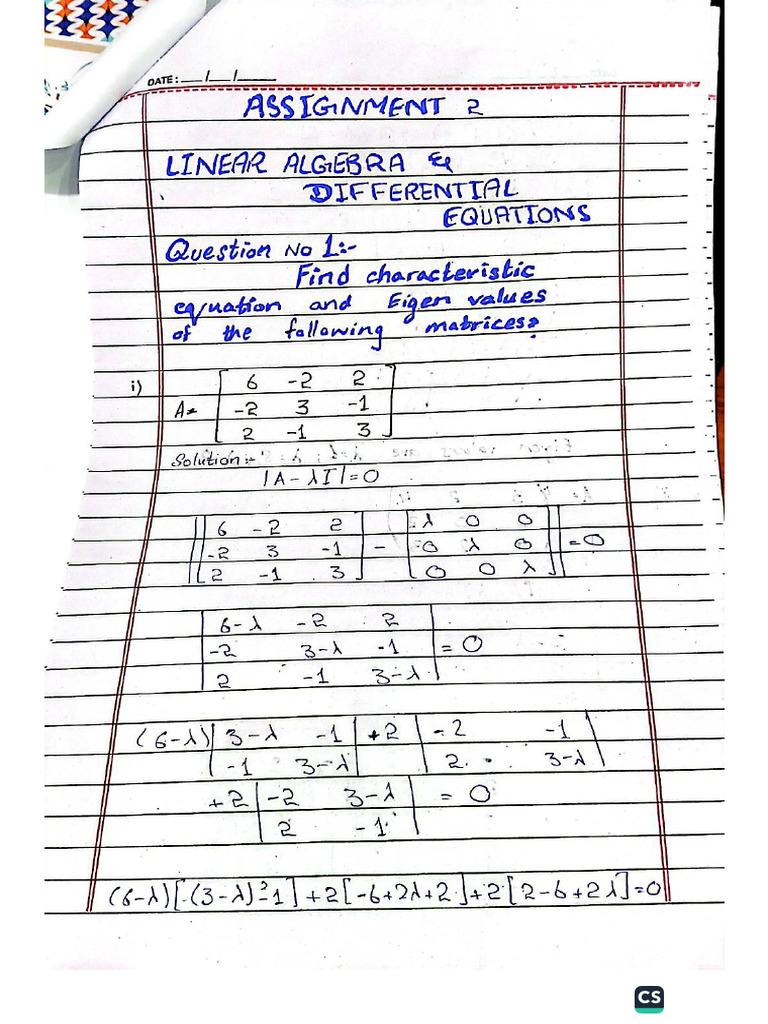 DATE: __/__/____
ASSIGNMENT 2
LINEAR ALGEBRA &
DIFFERENTIAL
EQUATIONS
Question No 1:-
Find characteristic
equation and Eigen values
of the following matrices?
i)
6 -2 2
A= -2 3 -1
2 -1 3
Solution:-
|A-λI|=0
|[6 -2 2] [λ 0 0]|
|[-2 3 -1] - [0 λ 0]| =0
|[2 -1 3] [0 0 λ]|
|6-λ -2 2|
|-2 3-λ -1| = 0
|2 -1 3-λ|
(6-λ) |3-λ -1| +2 |-2 -1|
|-1 3-λ| |2 3-λ|
+2 |-2 3-λ| = 0
|2 -1|
(6-λ)[(3-λ)²-1]+2[-6+2λ+2]+2[2-6+2λ]=0
CS